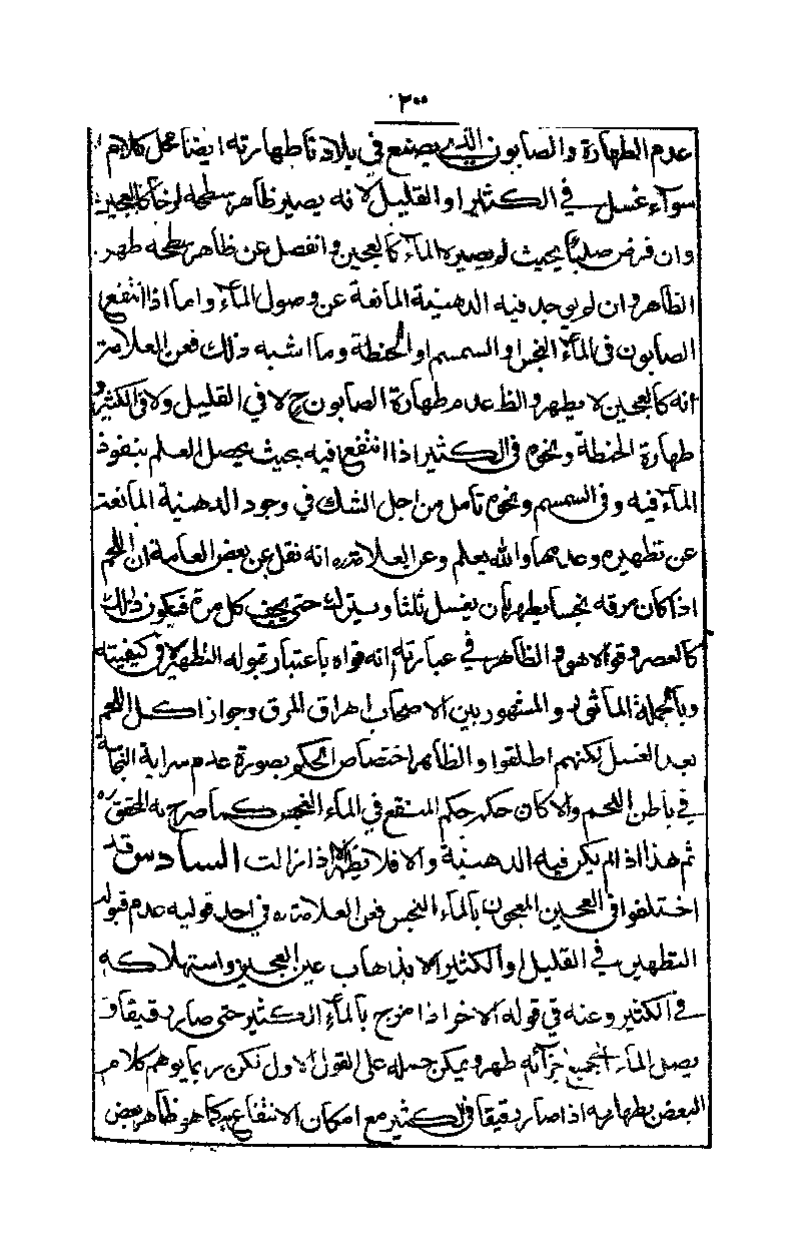 ٢٠٠
عدم الطهارة والصابون الذي يصنع في بلادنا طهارته ايضا محل كلام
سوآء غسل في الكثير او القليل لانه يصير ظاهر سطحه لزجا كالعجين
وان فرض صلبا بحيث لم يصيره المآء كالعجين وانفصل عن ظاهر سطحه طهر
الظاهر وان لم يوجد فيه الدهنية المانعة عن وصول المآء واما اذا انتفع
الصابون في المآء النجس او السمسم او الحنطة وما اشبه ذلك فعن العلامة
انه كالعجين لا يطهر والظ عدم طهارة الصابون ح لا في القليل ولا في الكثير و
طهارة الحنطة ونحوه في الكثير اذا انتقع فيه بحيث يحصل العلم بنفوذ
المآء فيه وفي السمسم ونحوه تأمل من اجل الشك في وجود الدهنية المانعة
عن تطهيره وعدمها والله يعلم وعن العلامة ره انه نقل عن بعض العامة ان اللحم
اذا كان مرقه نجسا يطهر بأن يغسل ثلثا ويترك حتى يجف كل مرة فيكون ذلك
كالعصر وقواه هو والظاهر في عبارته انه قواه باعتبار قبوله التطهير لا في كيفيته
وبالجملة المأثور والمشهور بين الاصحاب اهراق المرق وجواز اكل اللحم
بعد الغسل لكنهم اطلقوا والظاهر اختصاص الحكم بصورة عدم سراية النجاسة
في باطن اللحم والا كان حكمه حكم المنتقع في المآء النجس كما صرح به المحقق ره
ثم هذا اذا لم يكن فيه الدهنية والا فلا يطهر الا اذا زالت السادس قد
اختلفوا في العجين المعجون بالمآء النجس فعن العلامة ره في احد قوليه عدم قبوله
التطهير في القليل او الكثير الا بذهاب عين العجين واستهلاكه
في الكثير وعنه في قوله الاخر اذا مزج بالمآء الكثير حتى صار رقيقا و
يصل المآء الى جميع اجزآئه طهر ويمكن حمله على القول الاول لكن ربما يوهم كلام
البعض بطهارته اذا صار رقيقا في الكثير مع امكان الانتفاع به كما هو ظاهر بعض